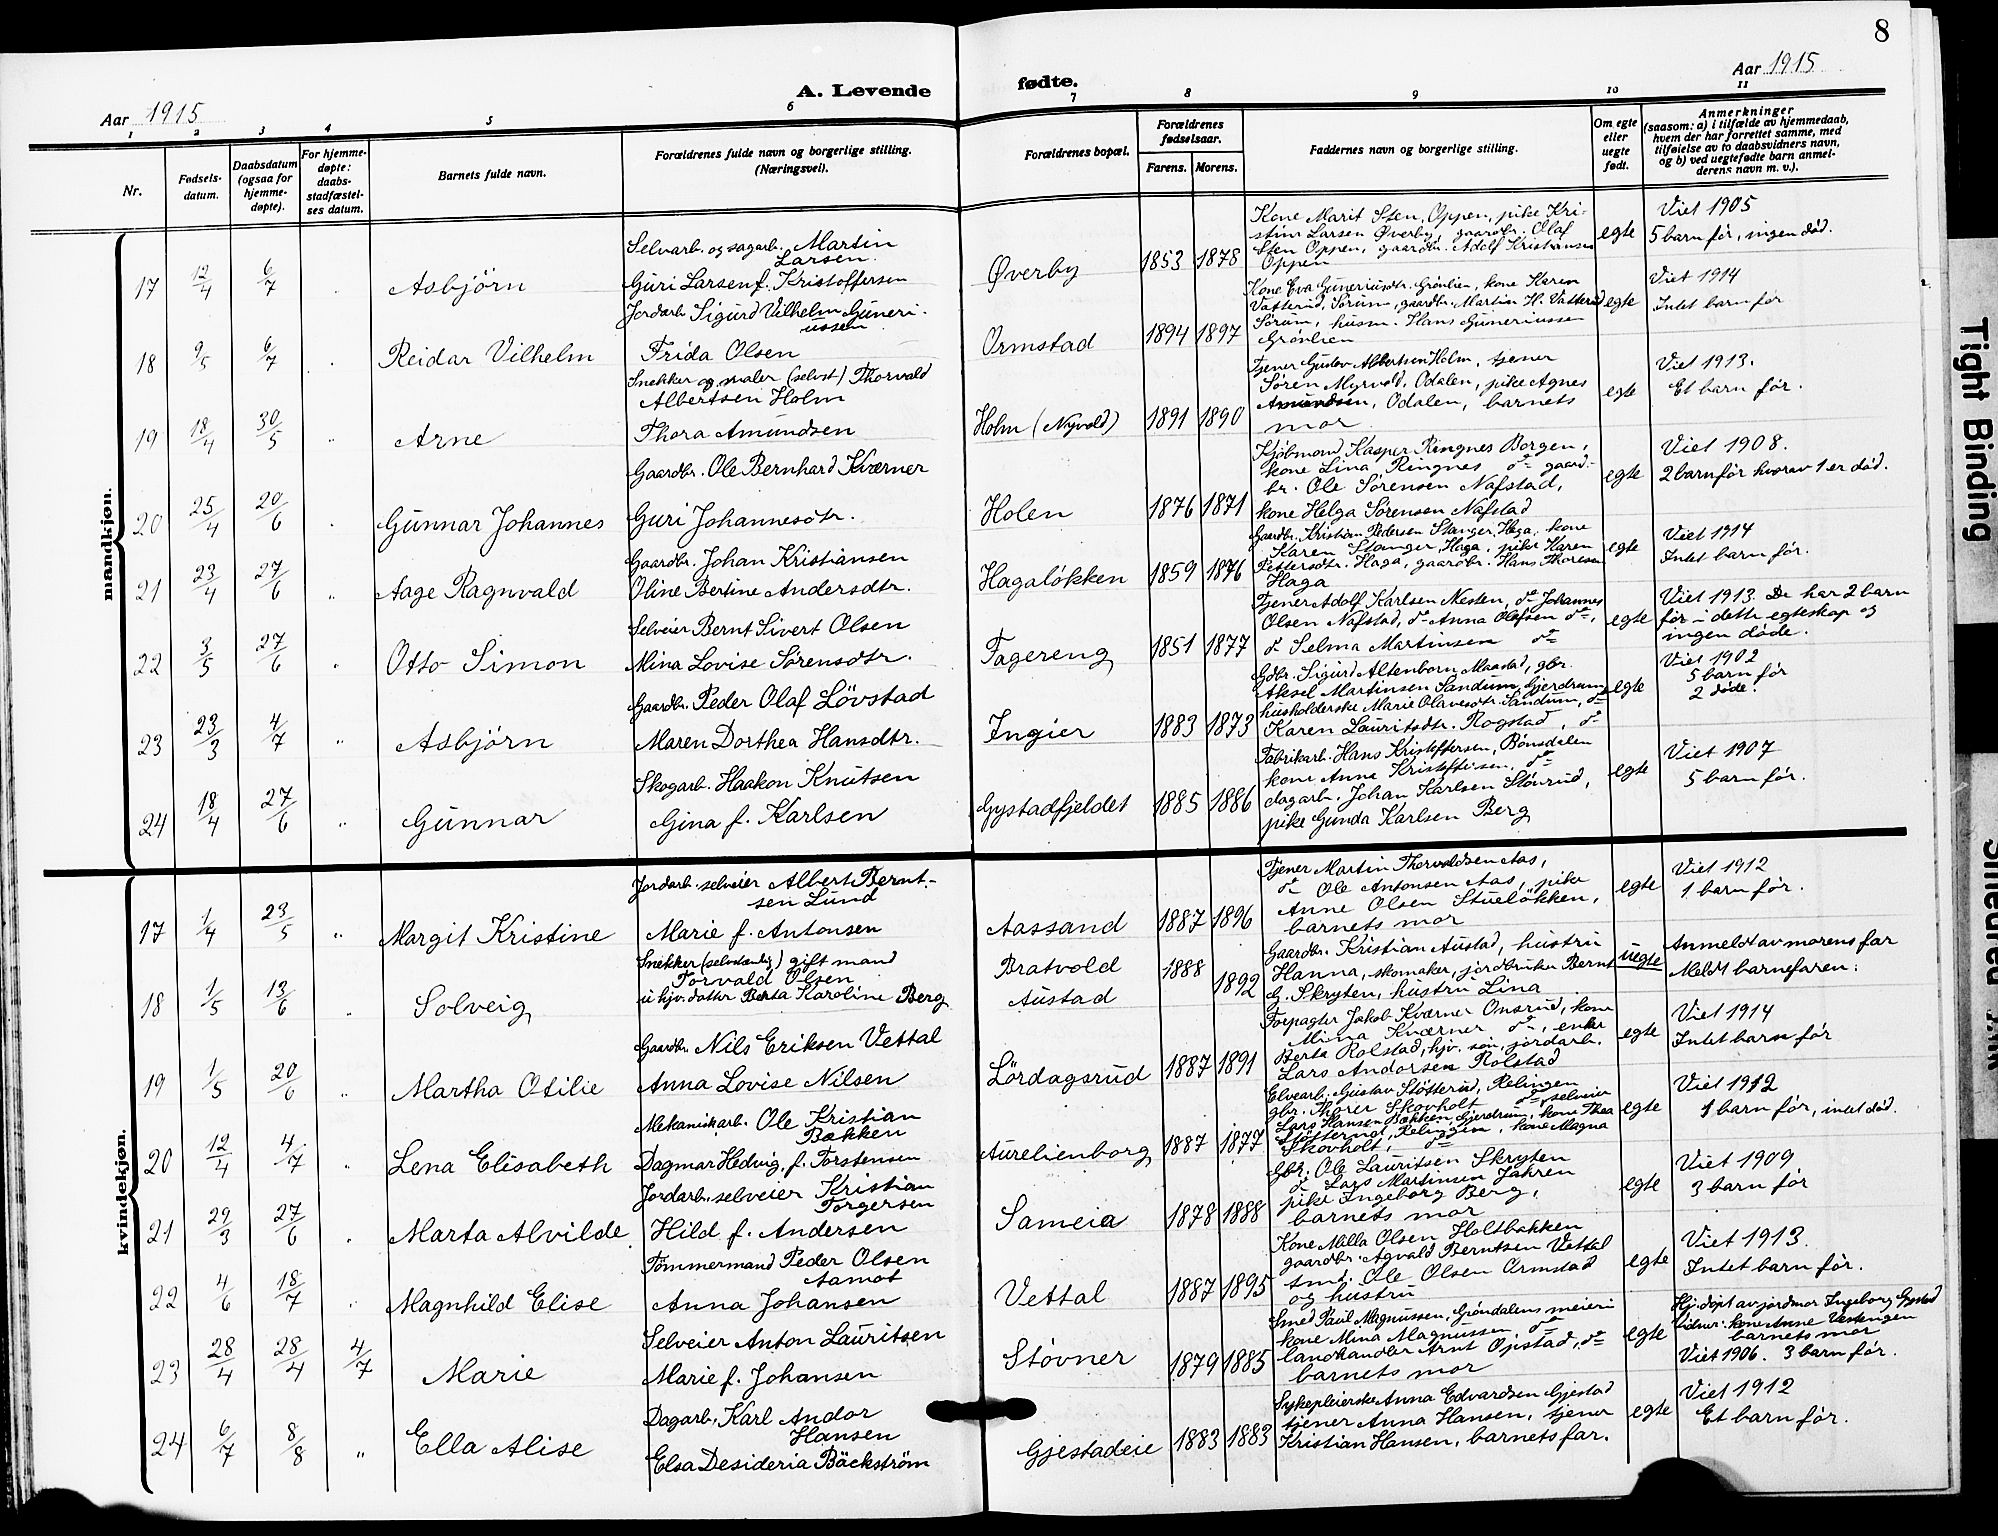 8
Aar 1915
A. Levende
fødte.
Aar 1915
1 2 3 4 5 6 7 8 9 10 11
Nr.
Fødsels-
datum.
Daabsdatum
(ogsaa for
hjemme-
døpte).
For hjemme-
døpte:
daabs-
stadfæstel-
ses datum.
Barnets fulde navn.
Forældrenes fulde navn og borgerlige stilling.
(Næringsvei).
Forældrenes bopæl.
Forældrenes
fødselsaar.
Farens. Morens.
Faddernes navn og borgerlige stilling.
Om egte
eller
uegte
født.
Anmerkninger
(saasom: a) i tilfælde av hjemmedaab,
hvem der har forrettet samme, med
tilføielse av to daabsvidners navn,
og b) ved uegtefødte barn anmel-
derens navn m. v.).
mandkjøn.
17 12/4 6/7 Asbjörn
Selvarb. og sagarb. Martin
Larsen.
Guri Larsen f. Kristoffersen
Øverby 1853 1878
Kone Marit Sten, Oppen, pike Kri-
stine Larsen Øverby, gaardbr. Olaf
Sten Oppen, gaardbr. Adolf Kristiansen
Oppen
egte
Viet 1905
5 barn før, ingen död.
18 9/5 6/7 Reidar Vilhelm
Jordarb. Sigurd Vilhelm Guneri-
ussen
Frida Olsen
Ormstad 1894 1897
Kone Eva Guneriusdtr. Grønlien, kone Karen
Vatterud, Sørum, gaardbr. Martin H. Vatterud
Sørum, husm. Hans Guneriussen
Grønlien
egte
Viet 1914
Intet barn før
19 18/4 30/5 " Arne
Snekker og maler (selvst) Thorvald
Albertsen Holm
Thora Amundsen
Holm (Nyvold) 1891 1890
Tjener Gustav Albertsen Holm, tjener
Søren Myrvold, Odalen, pike Agnes
Amundsen, Odalen, barnets
mor
egte
Viet 1913.
Et barn før.
20 25/4 20/6 Gunnar Johannes
Gaardbr. Ole Bernhard Kværner
Guri Johannesdtr.
Holen 1876 1871
Kjøbmand Kasper Ringnes Borgen,
kone Lina Ringnes do gaard-
br. Ole Sørensen Nafstad,
kone Helga Sørensen Nafstad
egte
Viet 1908.
2 barn før hvorav 1 er död.
21 23/4 27/6 " Aage Ragnvald
Gaardbr. Johan Kristiansen
Oline Bertine Andersdtr.
Hagaløkken 1859 1876
Gaardbr. Kristian Pedersen Stanger, Haga, kone
Karen Stanger, Haga, pike Karen
Pettersdtr. Haga, gaardbr. Hans Thoresen
Haga
egte
Viet 1914
Intet barn før.
22 3/5 27/6 " Otto Simon
Selveier Bernt Sivert Olsen
Mina Lovise Sørensdtr.
Fagereng 1851 1877
Tjener Adolf Karlsen Nesten, do Johannes
Olsen Nafstad, do Anna Olafsen do,
do Selma Martinsen do
egte
Viet 1913. De har 2 barn
før i dette egteskap og
ingen døde.
23 23/3 4/7 " Asbjörn
Gaardbr. Peder Olaf Lövstad
Maren Dorthea Hansdtr.
Ingier 1883 1873
Gdbr. Sigurd Altenborn Maastad, gbr.
Aksel Martinsen Sandum, Gjerdrum,
husholderske Marie Olavesdtr. Sandum, do
Karen Lauritsdtr. Rogstad, do
egte
Viet 1902
5 barn før
2 døde.
24 18/4 27/6 " Gunnar
Skogarb. Haakon Knutsen
Gina f. Karlsen
Gystadfjeldet 1885 1886
Fabrikarb. Hans Kristoffersen, Bönsdalen
kone Anna Kristoffersen, do
dagarb. Johan Karlsen Støvrud,
pike Gunda Karlsen Berg
egte
Viet 1907
5 barn før.
kvindekjøn.
17 1/4 23/5 " Margit Kristine
Jordarb. selveier Albert Bernt-
sen Lund
Marie f. Antonsen
Aassand 1887 1896
Tjener Martin Thorvaldsen Aas,
do Ole Antonsen Aas, pike
Anne Olsen Stueløkken,
barnets mor
egte
Viet 1912
1 barn før.
18 1/5 13/6 " Solveig
Snekker (selvstændig) gift mand
Torvald Olsen
u hjv. datter Berta Karoline Berg
Bratvold 1888
Austad 1892
Gaardbr. Kristian Austad, hustru
Hanna, skomaker, jordbruker Bernt
G. Skryten, hustru Lina
uegte
Anmeldt av morens far
Meldt barnefaren:
19 1/5 20/6 " Martha Otilie
Gaardbr. Nils Eriksen Vettal
Anna Lovise Nilsen
Lördagsrud 1887 1891
Forpagter Jakob Kværner Onsrud, kone
Mina Kværner do, enke
Berta Rolstad, hjv. søn, jordarb.
Lars Andersen Rolstad
egte
Viet 1914
Intet barn før
20 12/4 4/7 " Lena Elisabeth
Mekaniskarb. Ole Kristian
Bækken
Dagmar Hedvig, f. Torstensen
Aurelienborg 1887 1877
Elvearb. Gustav Støtterud, Relingen
gbr. Thorer Skovholt do, selveier
Lars Hansen Bækken, Gjerdrum, kone Thea
Støtterud, Relingen, kone Magna
Skovholt, do
egte
Viet 1912
1 barn før, intet död.
21 29/3 27/6 Marta Alvilde
Jordarb. selveier Kristian
Torgersen
Hild f. Andersen
Sameia 1878 1888
Gbr. Ole Lauritsen Skryten
do Lars Martinsen Jahren
pike Ingeborg Berg,
barnets mor
egte
Viet 1909
3 barn før
22 4/6 18/7 Magnhild Elise
Tömmermand Peder Olsen
Aamot
Anna Johansen
Vettal 1887 1895
Kone Milla Olsen Holtbakken
gaardbr. Agvald Berntsen Vettal
smd. Ole Olsen Ormstad
og hustru
egte
Viet 1913
Intet barn før.
23 28/4 28/4 4/7 Marie
Selveier Anton Lauritsen
Marie f. Johansen
Støvner 1879 1885
Smed Paul Magnussen, Grøndalens meieri
kone Mina Magnussen, do
landhandler Arnt Opstad, do
barnets mor
egte
Hj. døpt av jordmor Ingeborg Gystad
Vidner: kone Anne Vestengen
barnets mor
Viet 1906. 3 barn før.
24 6/7 8/8 " Ella Alise
Dagarb. Karl Andor
Hansen
Elsa Desideria Bäckström
Gjestadeie 1883 1883
Sykepleierske Anna Edvardsen Gjestad
tjener Anna Hansen, tjener
Kristian Hansen, barnets far.
egte
Viet 1912
Et barn før.
Tight Binding